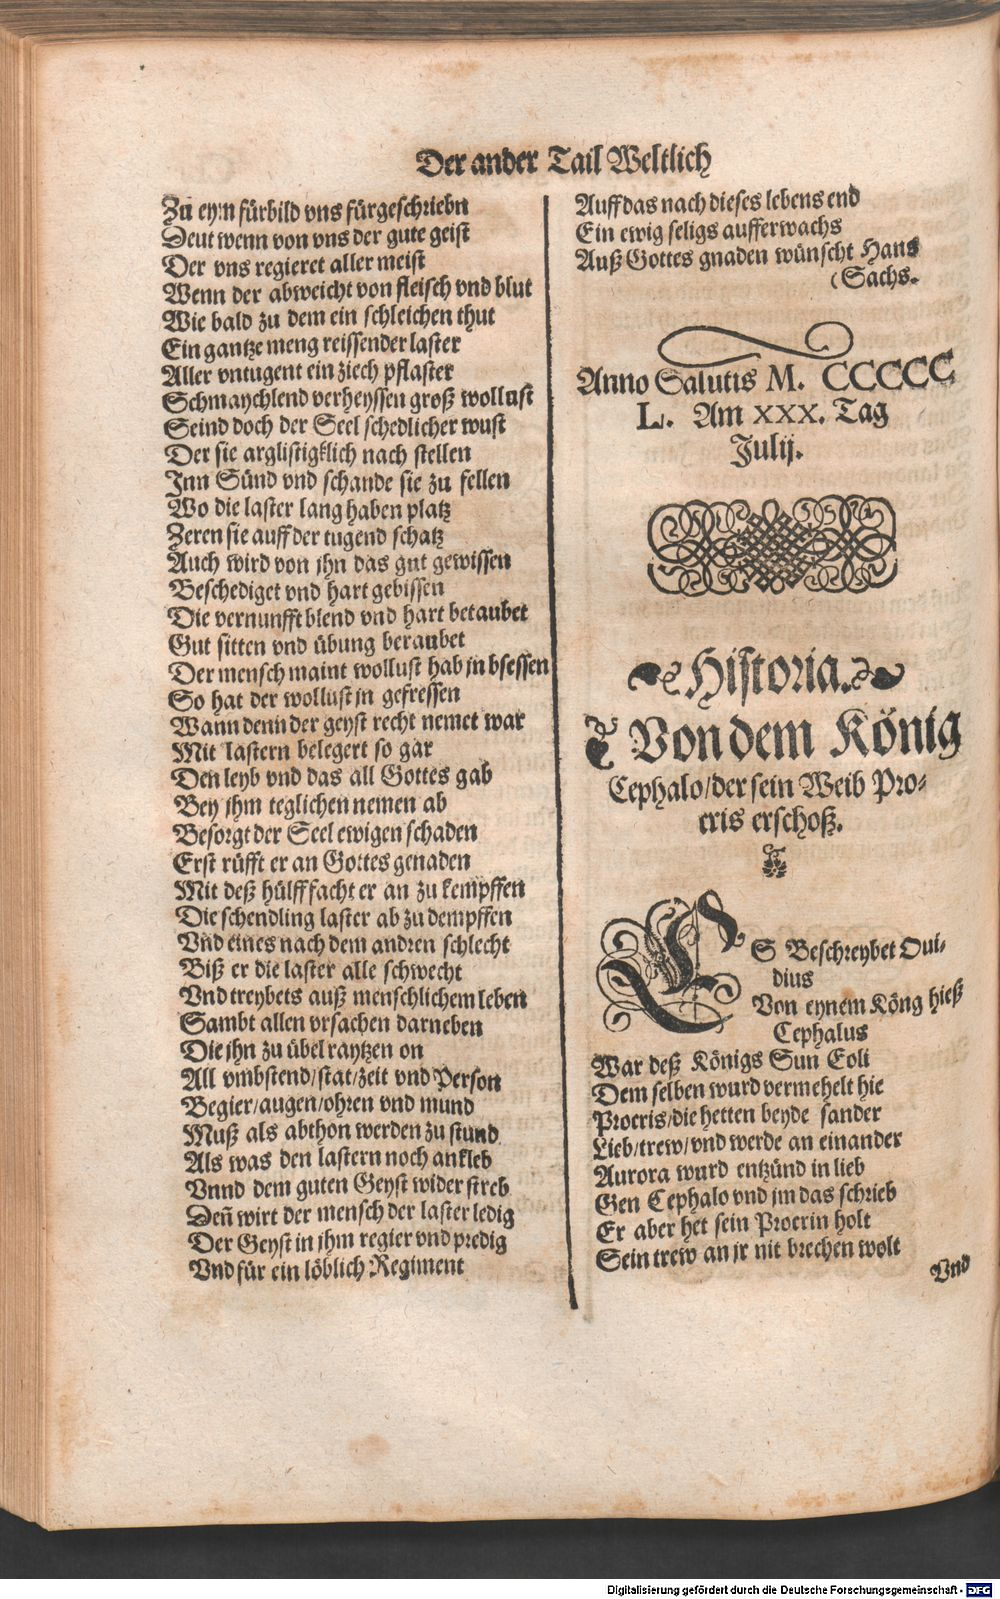 Der ander Tail Weltlich
Zu eym fürbild vns fürgeschriebn
Deut wenn von vns der gute geist
Der vns regieret aller meist
Wenn der abweicht von fleisch vnd blut
Wie bald zu dem ein schleichen thut
Ein gantze meng reissender laster
Aller vntugent ein ziech pflaster
Schmaychlend verheyssen groß wollust
Seind doch der Seel schedlicher wust
Der sie arglistigklich nach stellen
Jnn Sünd vnd schande sie zu fellen
Wo die laster lang haben platz
Zeren sie auff der tugend schatz
Auch wird von jhn das gut gewissen
Beschediget vnd hart gebissen
Die vernunfft blend vnd hart betaubet
Gut sitten vnd übung beraubet
Der mensch maint wollust hab jn bsessen
So hat der wollust jn gefressen
Wann denn der geyst recht nemet war
Mit lastern belegert so gar
Den leyb vnd das all Gottes gab
Bey jhm teglichen nemen ab
Besorgt der Seel ewigen schaden
Erst rüfft er an Gottes genaden
Mit deß hülff facht er an zu kempffen
Die schendling laster ab zu dempffen
Vnd eines nach dem andren schlecht
Biß er die laster alle schwecht
Vnd treybets auß menschlichem leben
Sambt allen vrsachen darneben
Die jhn zu übel raytzen on
All vmbstend/stat/zeit vnd Person
Begier/augen/ohren vnd mund
Muß als abthon werden zu stund
Als was den lastern noch ankleb
Vnnd dem guten Geyst wider streb
Deñ wirt der mensch der laster ledig
Der Geyst in jhm regier vnd predig
Vnd für ein löblich Regiment
Auff das nach dieses lebens end
Ein ewig seligs aufferwachs
Auß Gottes gnaden wünscht Hans
(Sachs.
Anno Salutis M. CCCCC
L. Am XXX. Tag
Julij.
Historia.
Von dem König
Cephalo/der sein Weib Pro-
cris erschoß.
ES Beschreybet Oui-
dius
Von eynem Köng hieß
Cephalus
War deß Königs Sun Eoli
Dem selben wurd vermehelt hie
Procris/die hetten beyde sander
Lieb/trew/vnd werde an einander
Aurora wurd entzünd in lieb
Gen Cephalo vnd jm das schrieb
Er aber het sein Procrin holt
Sein trew an jr nit brechen wolt
Vnd
Digitalisierung gefördert durch die Deutsche Forschungsgemeinschaft - DFG